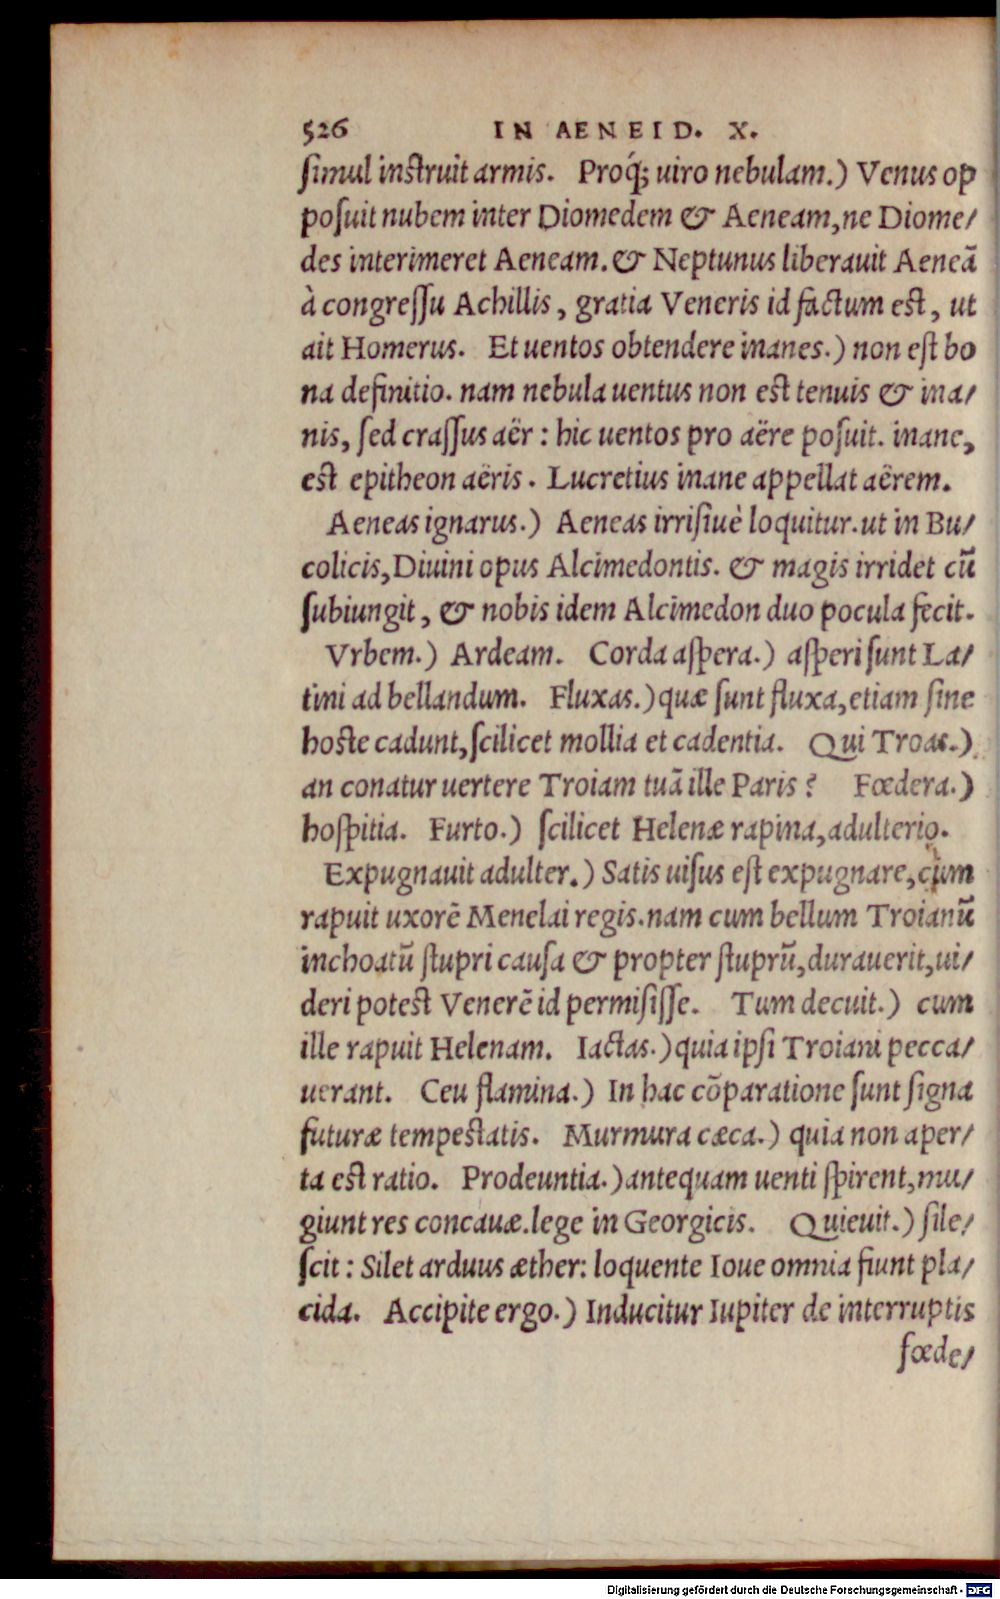 526 IN AENEID. X.
ſimul inſtruit armis. Proq́; uiro nebulam.) Venus op
poſuit nubem inter Diomedem & Aeneam, ne Diome/
des interimeret Aeneam. & Neptunus liberauit Aeneā
à congreſſu Achillis, gratia Veneris id factum eſt, ut
ait Homerus. Et uentos obtendere inanes.) non eſt bo
na definitio. nam nebula uentus non eſt tenuis & ina/
nis, ſed craſſus aër: hic uentos pro aëre poſuit. inane,
eſt epitheon aëris. Lucretius inane appellat aërem.
Aeneas ignarus.) Aeneas irriſiuè loquitur. ut in Bu/
colicis, Diuini opus Alcimedontis. & magis irridet cū
ſubiungit, & nobis idem Alcimedon duo pocula fecit.
Vrbem.) Ardeam. Corda aſpera.) aſperi ſunt La/
tini ad bellandum. Fluxas.) quæ ſunt fluxa, etiam ſine
hoſte cadunt, ſcilicet mollia et cadentia. Qui Troas.)
an conatur uertere Troiam tuā ille Paris? Fœdera.)
hoſpitia. Furto.) ſcilicet Helenæ rapina, adulterio.
Expugnauit adulter.) Satis uiſus eſt expugnare, cum
rapuit uxorē Menelai regis. nam cum bellum Troianū
inchoatū ſtupri cauſa & propter ſtuprū, durauerit, ui/
deri poteſt Venerē id permiſiſſe. Tum decuit.) cum
ille rapuit Helenam. Iactas.) quia ipſi Troiani pecca/
uerant. Ceu flamina.) In hac cōparatione ſunt ſigna
futuræ tempeſtatis. Murmura cæca.) quia non aper/
ta eſt ratio. Prodeuntia.) antequam uenti ſpirent, mu/
giunt res concauæ. lege in Georgicis. Quieuit.) ſile/
ſcit: Silet arduus æther: loquente Ioue omnia fiunt pla/
cida. Accipite ergo.) Inducitur Iupiter de interruptis
fœde/
Digitalisierung gefördert durch die Deutsche Forschungsgemeinschaft - DFG